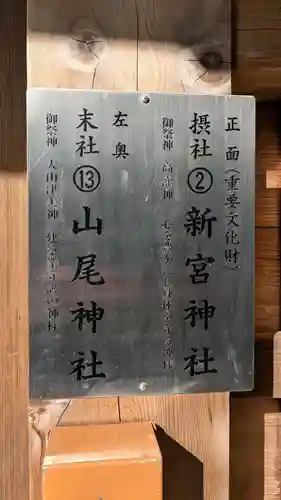 正面(重要文化財)
摂社②新宮神社
御祭神 神様
左奥
末社⑬山尾神社
御祭神 大山津美神 の神様